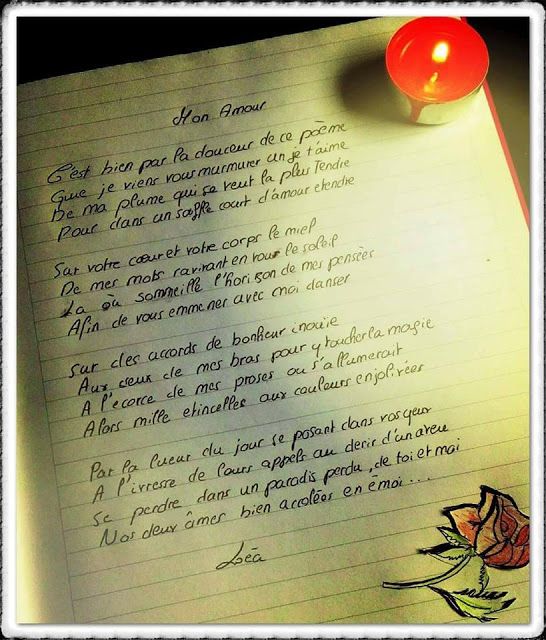 Mon Amour
C'est bien par la douceur de ce poème
Que je viens vous murmurer un je t'aime
De ma plume qui se veut la plus tendre
Pour dans un souffle court d'amour etendre
Sur votre cœur et votre corps le miel
De mes mots ravivant en vous le soleil
La où sommeille l'horizon de mes pensées
Afin de vous emmener avec moi danser
Sur des accords de bonheur inouïe
Aux creux de mes bras pour y toucher la magie
A l'écorce de mes proses ou s'allumerait
Alors mille etincelles aux couleurs enjolivées
Par la lueur du jour se posant dans vos yeux
A l'ivresse de leurs appels au desir d'un aveu
Se perdre dans un paradis perdu, de toi et moi
Nos deux âmes bien accolées en émoi...
Léa